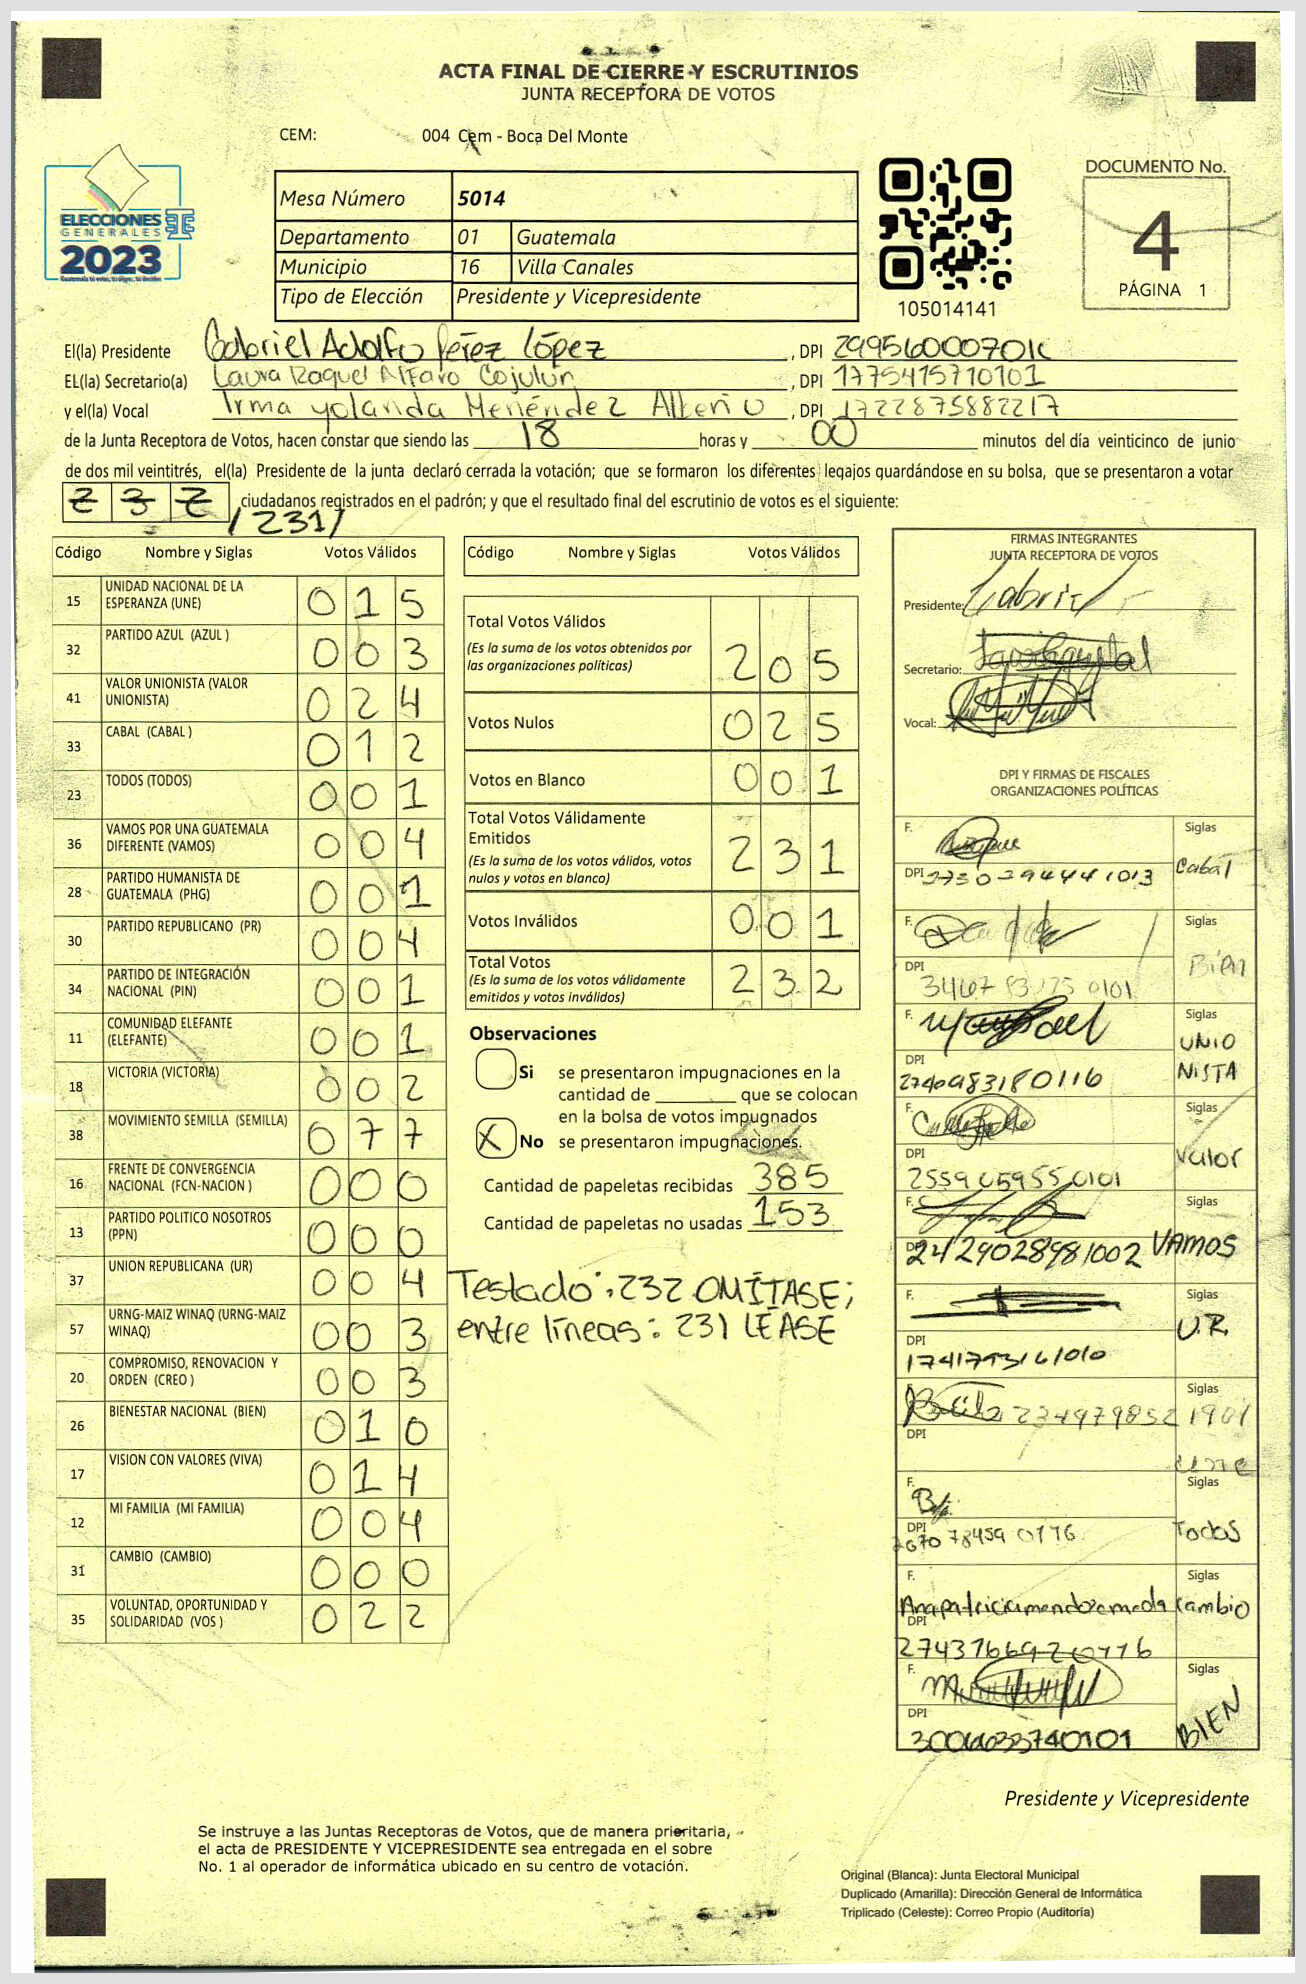 ACTA FINAL DE CIERRE Y ESCRUTINIOS
JUNTA RECEPTORA DE VOTOS
CEM: 004 Cem - Boca Del Monte
ELECCIONES
GENERALES
2023
Mesa Número 5014
Departamento 01 Guatemala
Municipio 16 Villa Canales
Tipo de Elección Presidente y Vicepresidente
105014141
DOCUMENTO No.
4
PÁGINA 1
El(la) Presidente Gabriel Adolfo Pérez López , DPI
EL(la) Secretario(a) Laura Raquel Alfaro Cojulún , DPI 1775415710101
y el(la) Vocal Irma Yolanda Menéndez , DPI 1722875882217
de la Junta Receptora de Votos, hacen constar que siendo las 18 horas y 00 minutos del día veinticinco de junio
de dos mil veintitrés, el(la) Presidente de la junta declaró cerrada la votación; que se formaron los diferentes legajos guardándose en su bolsa, que se presentaron a votar
232 ciudadanos registrados en el padrón; y que el resultado final del escrutinio de votos es el siguiente:
/231/
Código Nombre y Siglas Votos Válidos
15 UNIDAD NACIONAL DE LA ESPERANZA (UNE) 015
32 PARTIDO AZUL (AZUL ) 003
41 VALOR UNIONISTA (VALOR UNIONISTA) 024
33 CABAL (CABAL ) 012
23 TODOS (TODOS) 001
36 VAMOS POR UNA GUATEMALA DIFERENTE (VAMOS) 004
28 PARTIDO HUMANISTA DE GUATEMALA (PHG) 001
30 PARTIDO REPUBLICANO (PR) 004
34 PARTIDO DE INTEGRACIÓN NACIONAL (PIN) 001
11 COMUNIDAD ELEFANTE (ELEFANTE) 001
18 VICTORIA (VICTORIA) 002
38 MOVIMIENTO SEMILLA (SEMILLA) 077
16 FRENTE DE CONVERGENCIA NACIONAL (FCN-NACION ) 000
13 PARTIDO POLITICO NOSOTROS (PPN) 000
37 UNION REPUBLICANA (UR) 004
57 URNG-MAIZ WINAQ (URNG-MAIZ WINAQ) 003
20 COMPROMISO, RENOVACION Y ORDEN (CREO ) 003
26 BIENESTAR NACIONAL (BIEN) 010
17 VISION CON VALORES (VIVA) 014
12 MI FAMILIA (MI FAMILIA) 004
31 CAMBIO (CAMBIO) 000
35 VOLUNTAD, OPORTUNIDAD Y SOLIDARIDAD (VOS ) 022
Código Nombre y Siglas Votos Válidos
Total Votos Válidos 205
(Es la suma de los votos obtenidos por
las organizaciones políticas)
Votos Nulos 025
Votos en Blanco 001
Total Votos Válidamente
Emitidos 231
(Es la suma de los votos válidos, votos
nulos y votos en blanco)
Votos Inválidos 001
Total Votos 232
(Es la suma de los votos válidamente
emitidos y votos inválidos)
Observaciones
Si se presentaron impugnaciones en la
cantidad de ________ que se colocan
en la bolsa de votos impugnados
X No se presentaron impugnaciones.
Cantidad de papeletas recibidas 385
Cantidad de papeletas no usadas 153
Testado: 232 OMÍTASE;
entre líneas: 231 LÉASE
FIRMAS INTEGRANTES
JUNTA RECEPTORA DE VOTOS
Presidente: Gabriel
Secretario:
Vocal:
DPI Y FIRMAS DE FISCALES
ORGANIZACIONES POLÍTICAS
F. Siglas
DPI Cabal
F. Siglas
DPI Bien
F. Siglas
UNIO
NISTA
DPI 2740983180116
F. Siglas
DPI Valor
2559059550101
F. Siglas
DPI 2429028981002 VAMOS
F. Siglas
U.R.
DPI
1741793161010
F. Siglas
2349798521901
DPI
une
F. Siglas
DPI Todos
F. Siglas
cambio
DPI
2743766920116
F. Siglas
DPI BIEN
3006633740101
Presidente y Vicepresidente
Se instruye a las Juntas Receptoras de Votos, que de manera prioritaria,
el acta de PRESIDENTE Y VICEPRESIDENTE sea entregada en el sobre
No. 1 al operador de informática ubicado en su centro de votación.
Original (Blanca): Junta Electoral Municipal
Duplicado (Amarilla): Dirección General de Informática
Triplicado (Celeste): Correo Propio (Auditoría)